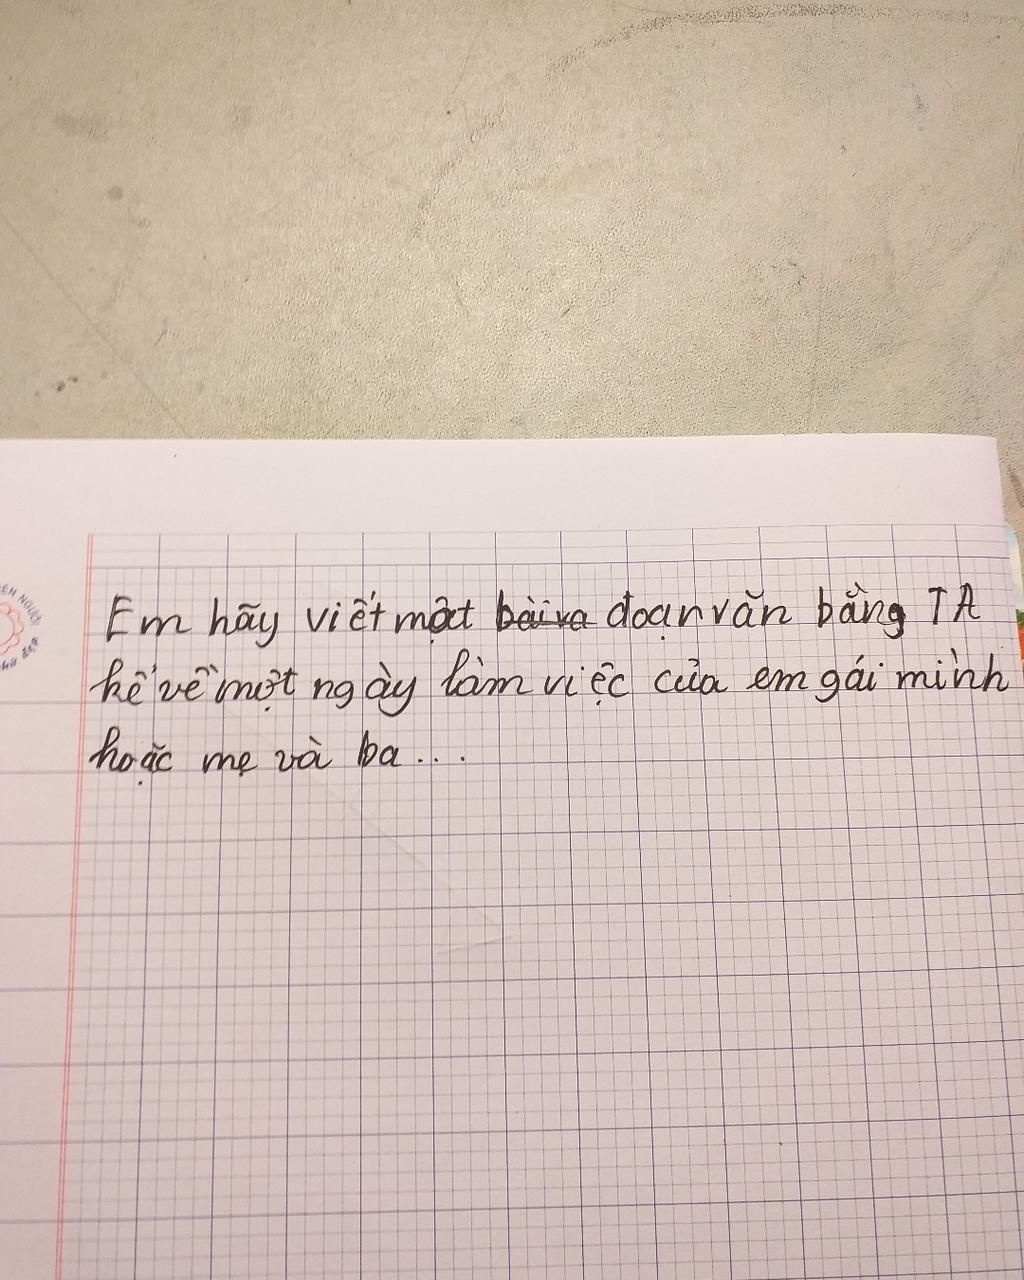 Em hãy viết một bài va đoạn văn bằng TA
kể về một ngày làm việc của em gái mình
hoặc mẹ và ba...